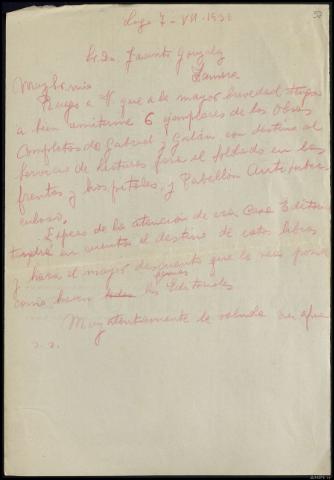 Lugo 7-VII-1938
Sr. Dn. Jacinto González
Zamora
Muy Sr. mio
Ruego a Vd que a la mayor brevedad tenga
a bien remitirme 6 ejemplares de las Obras
Completas de Gabriel y Galán con destino al
servicio de lecturas para el soldado en los
frentes y hospitales, y Pabellón Antituber-
culoso.
Espero de la atención de esa Casa Editori
tendrá en cuenta el destino de estos libros
y hará el mayor descuento que le sea posible
como hacen todas las Editoriales
Muy atentamente le saluda su afmo
s. s.